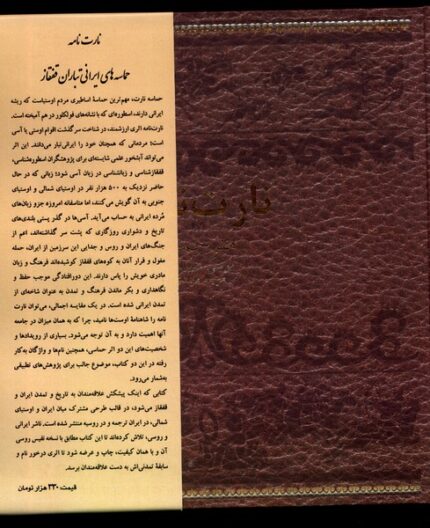 نارت نامه
حماسه‌های ایرانی تباران قفقاز
حماسه نارت، مهم‌ترین حماسهٔ اساطیری مردم اوستیاست که ریشه
ایرانی دارند، اسطوره‌ای که با نشانه‌های فولکلور در هم آمیخته است.
نارت‌نامه اثری ارزشمند، در شناخت سرگذشت اقوام اوستی یا آسی
است؛ مردمانی که همچنان خود را ایرانی‌تبار می‌دانند. این اثر
می‌تواند آبشخور علمی شایسته‌ای برای پژوهشگران اسطوره‌شناسی،
قفقازشناسی و زبانشناسی در زبان آسی شود؛ زبانی که در حال
حاضر نزدیک به ۵۰۰ هزار نفر در اوستیای شمالی و اوستیای
جنوبی به آن گویش می‌کنند، اما متاسفانه امروزه جزو زبان‌های
مُرده ایرانی به حساب می‌آید. آسی‌ها در گذر پستی بلندی‌های
تاریخ و دشواری روزگاری که پشت سر گذاشته‌اند، اعم از
جنگ‌های ایران و روس و جدایی این سرزمین از ایران، حمله
مغول و قرار آنان به کوه‌های قفقاز کوشیده‌اند فرهنگ و زبان
مادری خویش را پاس دارند. این دورافتادگی موجب حفظ و
نگاهداری و بکر ماندن فرهنگ و تمدن به عنوان شاخه‌ای از
تمدن ایرانی شده است. در یک مقایسه اجمالی، می‌توان نارت
نامه را شاهنامهٔ اوست‌ها نامید، چرا که به همان میزان در جامعه
آنها اهمیت دارد و به آن توجه می‌شود. بسیاری از رویدادها و
شخصیت‌های این دو اثر حماسی، همچنین نام‌ها و واژگان به‌کار
رفته در این دو کتاب، موضوع جالب برای پژوهش‌های تطبیقی
به‌شمار می‌رود.
کتابی که اینک پیشکش علاقه‌مندان به تاریخ و تمدن ایران و
قفقاز می‌شود، در قالب طرحی مشترک میان ایران و اوستیای
شمالی، در ایران ترجمه و در روسیه منتشر شده است. ناشر ایرانی
و روسی، تلاش کرده‌اند تا این کتاب مطابق با نسخه نفیس روسی
آن و با همان کیفیت، چاپ و عرضه شود تا اثری درخور نام و
سابقهٔ تمدنی‌اش به دست علاقه‌مندان برسد.
قیمت: ۳۳۰ هزار تومان